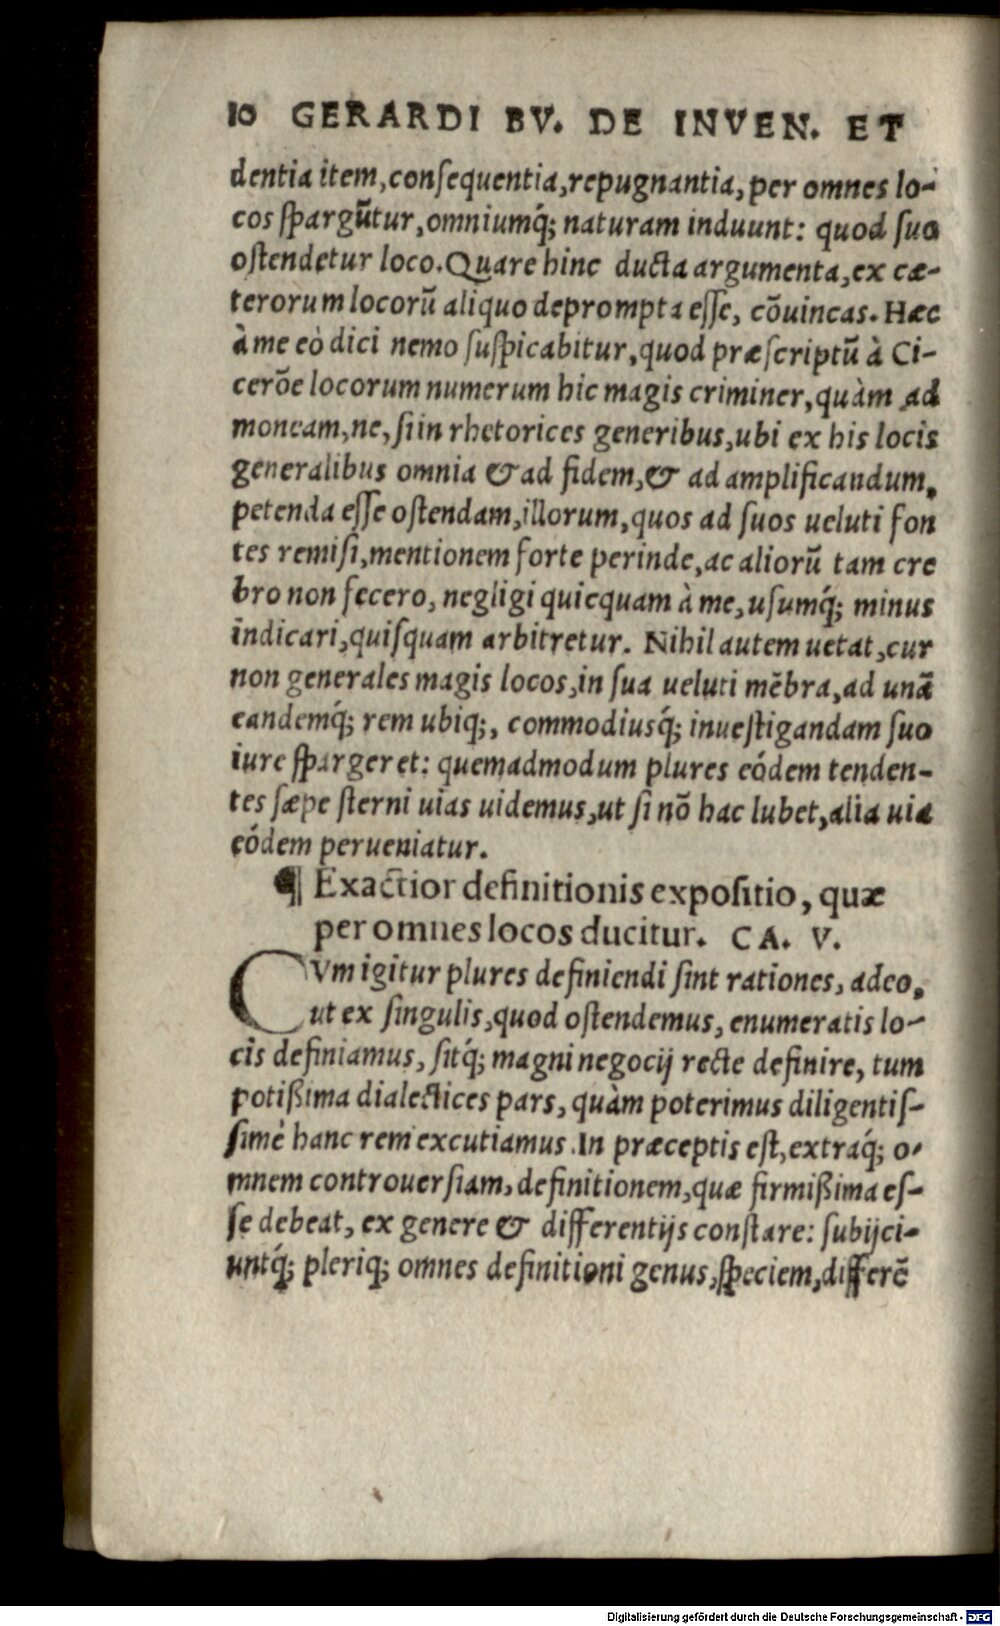 10 GERARDI BV. DE INVEN. ET
dentia item, conſequentia, repugnantia, per omnes lo-
cos ſpargũtur, omniumq́; naturam induunt: quod ſuo
oſtendetur loco. Quare hinc ducta argumenta, ex cæ-
terorum locorũ aliquo deprompta eſſe, cõuincas. Hæc
à me eò dici nemo ſuſpicabitur, quod præſcriptũ à Ci-
cerõe locorum numerum hic magis criminer, quàm ad
moneam, ne, ſi in rhetorices generibus, ubi ex his locis
generalibus omnia & ad fidem, & ad amplificandum,
petenda eſſe oſtendam, illorum, quos ad ſuos ueluti fon
tes remiſi, mentionem forte perinde, ac aliorũ tam cre
bro non fecero, negligi quicquam à me, uſumq́; minus
indicari, quiſquam arbitretur. Nihil autem uetat, cur
non generales magis locos, in ſua ueluti mẽbra, ad unã
eandemq́; rem ubiq;, commodiusq́; inueſtigandam ſuo
iure ſpargeret: quemadmodum plures eódem tenden-
tes ſæpe ſterni uias uidemus, ut ſi nõ hac lubet, alia uia
eódem perueniatur.
¶ Exactior definitionis expoſitio, quæ
per omnes locos ducitur. CA. V.
CVm igitur plures definiendi ſint rationes, adeo,
ut ex ſingulis, quod oſtendemus, enumeratis lo-
cis definiamus, ſitq́; magni negocij recte definire, tum
potißima dialectices pars, quàm poterimus diligentiſ-
ſimè hanc rem excutiamus. In præceptis eſt, extraq́; o-
mnem controuerſiam, definitionem, quæ firmißima eſ-
ſe debeat, ex genere & differentijs conſtare: ſubijci-
untq́; pleriq; omnes definitioni genus, ſpeciem, differẽ
Digitalisierung gefördert durch die Deutsche Forschungsgemeinschaft - DFG